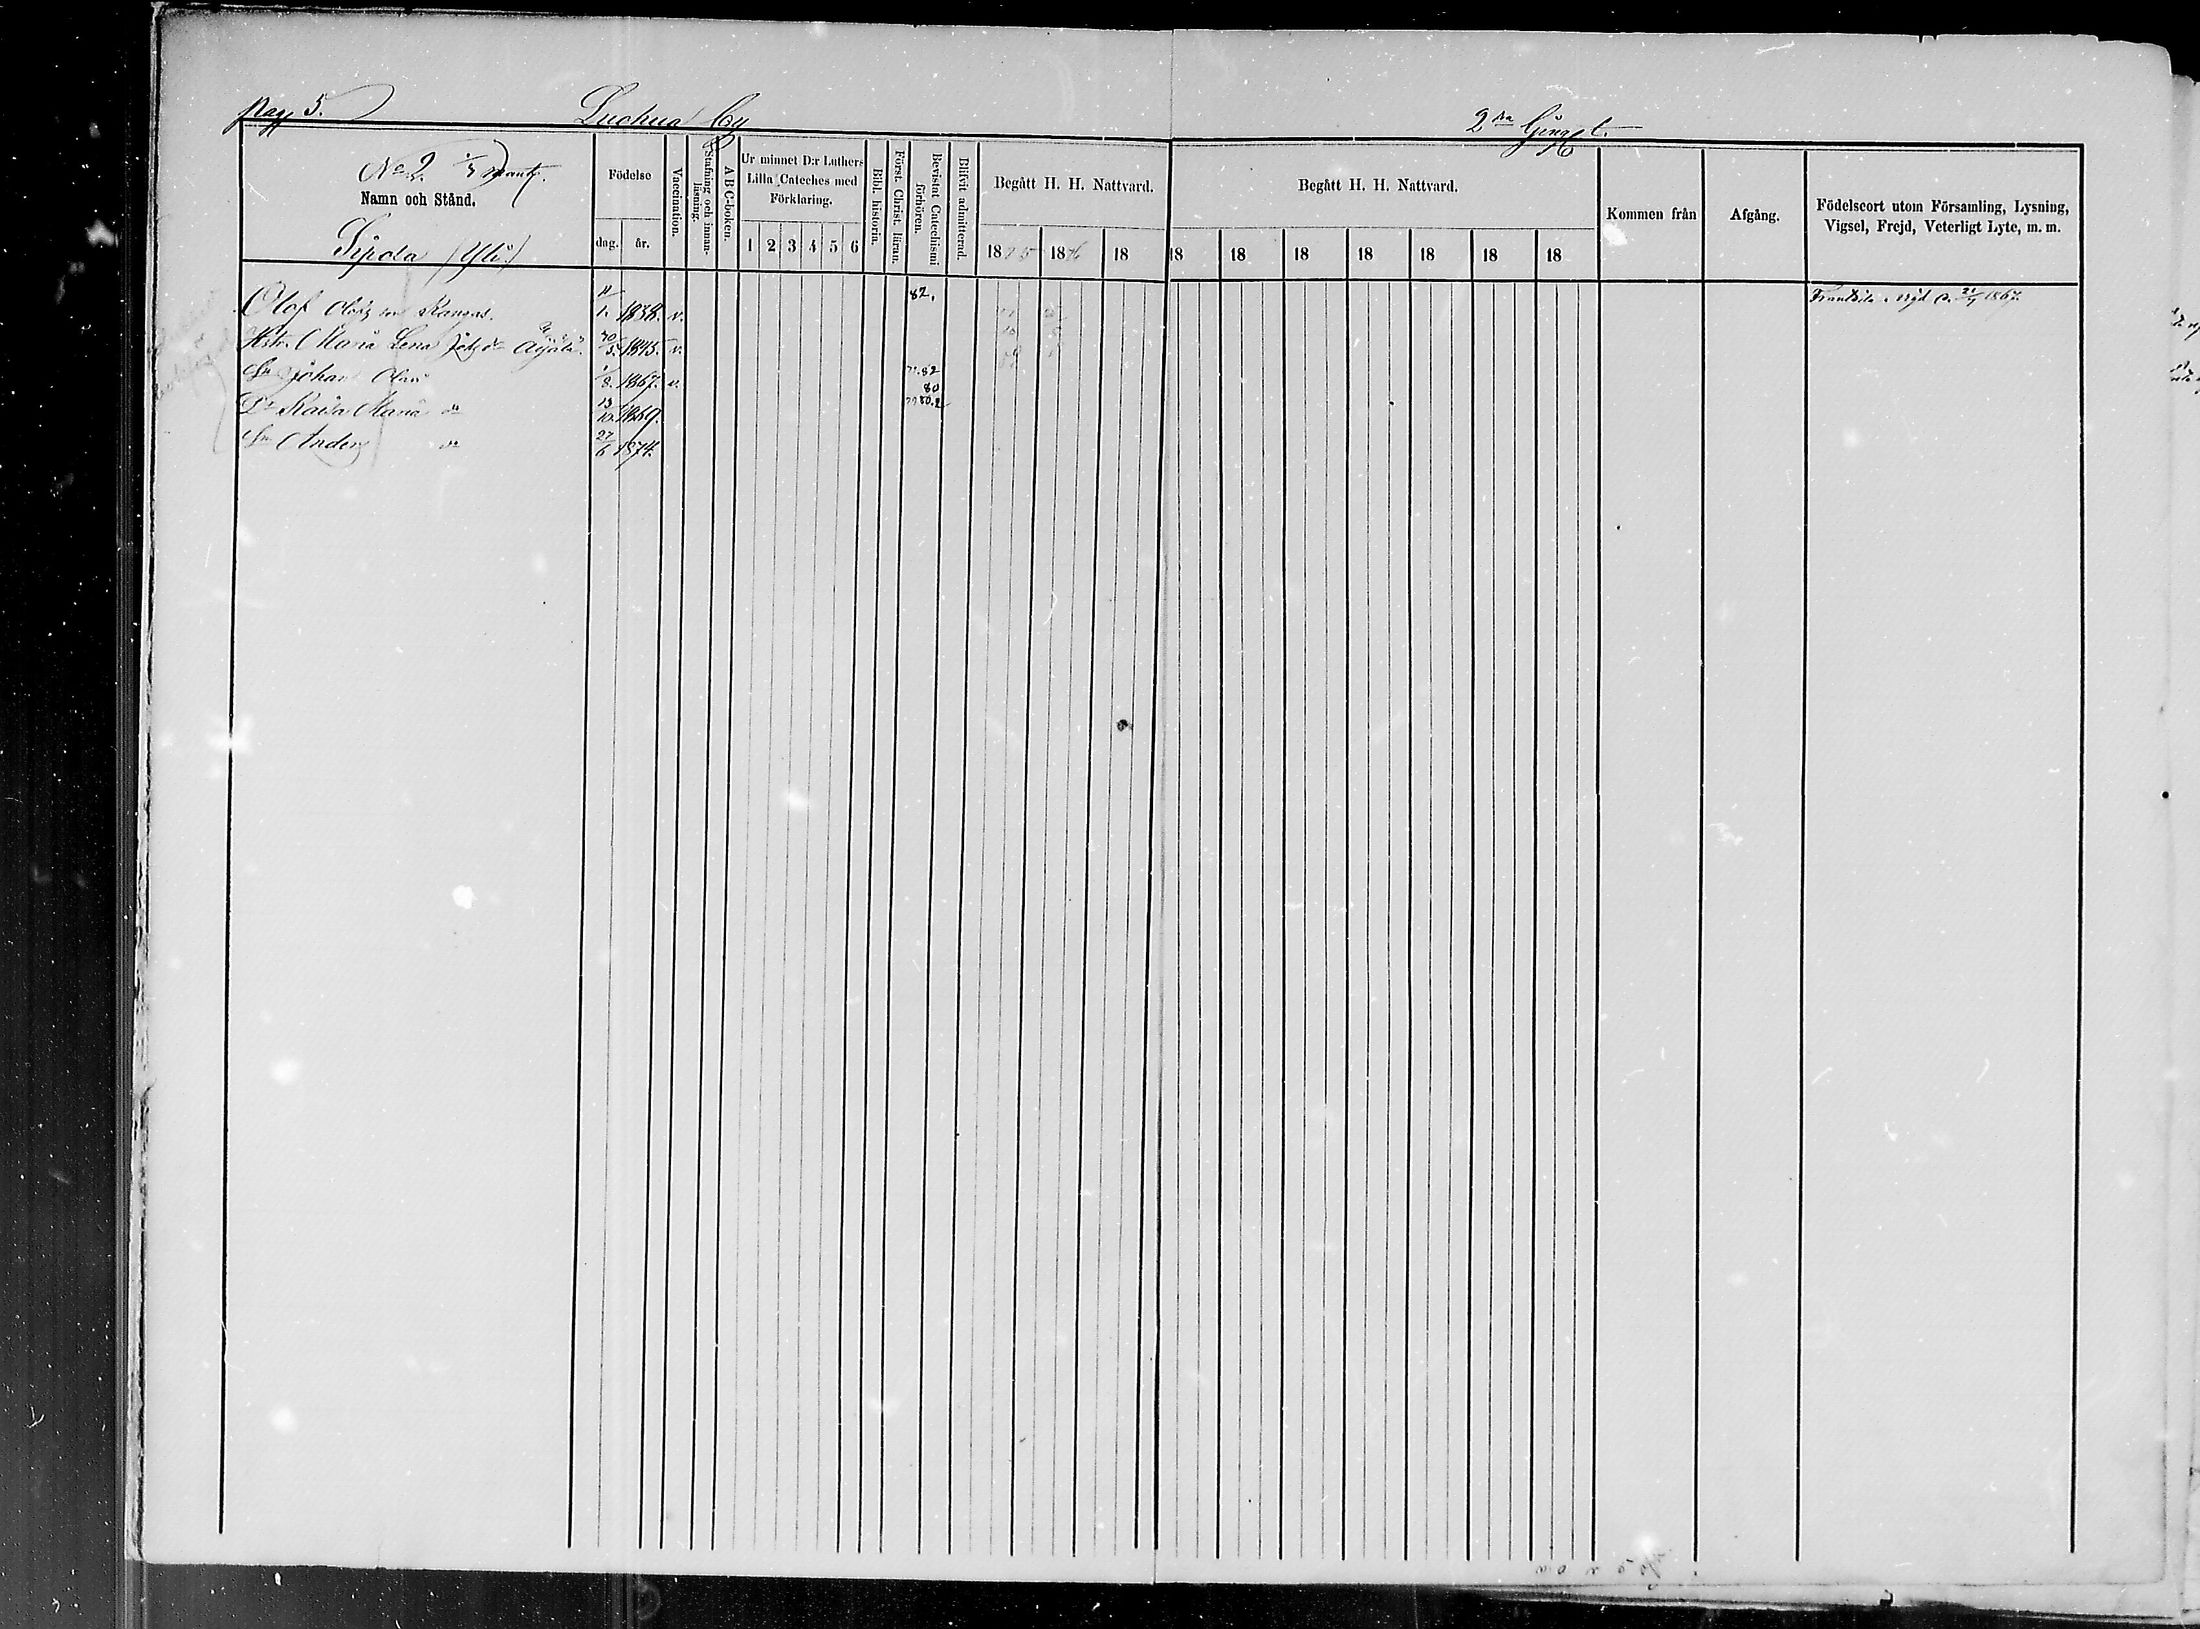 pag. 5. Luohua By 2dra Gångst.
No 2. 1/3 Mantl.
Namn och Stånd.
Sipola /Yli/
Födelse
dag. år.
Vaccination.
Stafning och innanläsning.
A B C-boken.
Ur minnet D:r Luthers
Lilla Cateches med
Förklaring.
1 2 3 4 5 6
Bibl. historia.
Först. Christ. läran.
Bevistat Catechismi förhören.
Blifvit admitterad.
Begått H. H. Nattvard.
1875 1876 18
Begått H. H. Nattvard.
18 18 18 18 18 18 18
Kommen från
Afgång.
Födelseort utom Församling, Lysning,
Vigsel, Frejd, Veterligt Lyte, m. m.
Olof Kangas. 1838. v. 82. 1867.
Maria Lena Äijälä. 5. 1845. v.
Sn Johan 8. 1867. v. 82
80
Dr Kaisa Maria do 13/10 1869. 80.2
Sn Anders do 27/6 1874.